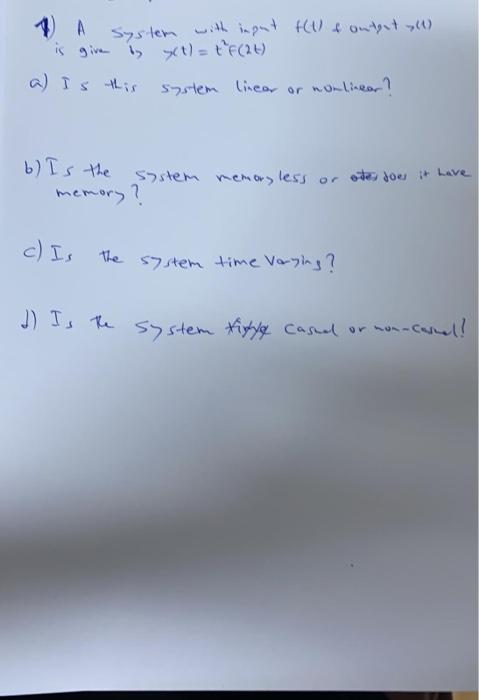 1) A system with input f(t) & output y(t)
is given by y(t) = t²f(2t)
a) Is this system linear or nonlinear?
b) Is the system memoryless or does it have
memory?
c) Is the system time varying?
d) Is the system casual or non-casual?